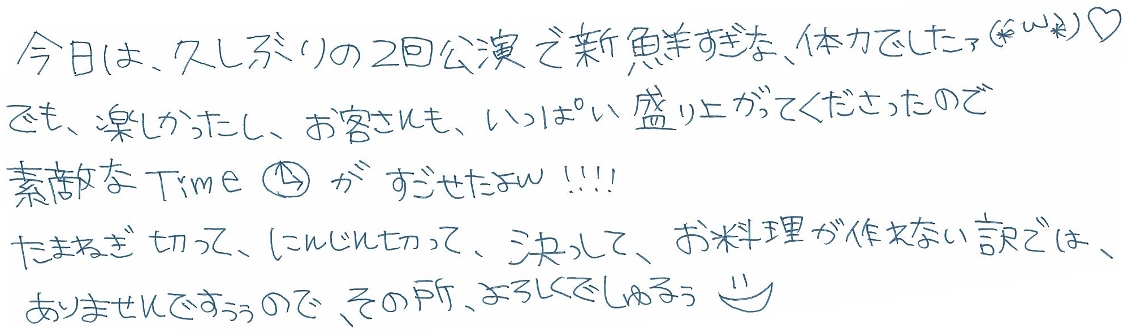 今日は、久しぶりの2回公演で新鮮すぎな、体力でしたァ(*´ω`*)♡
でも、楽しかったし、お客さんも、いっぱい盛り上がってくださったので
素敵なTimeがすごせたよw!!!!
たまねぎ切って、にんじん切って、決っして、お料理が作れない訳では、
ありませんですぅぅので、その所、よろしくでしゅるぅ